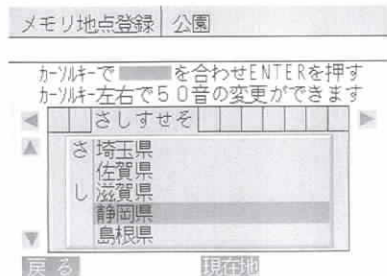 メモリ地点登録 公園
カーソルキーで を合わせENTERを押す
カーソルキー左右で50音の変更ができます
さしすせそ
さ 埼玉県
佐賀県
し 滋賀県
静岡県
島根県
戻る 現在地